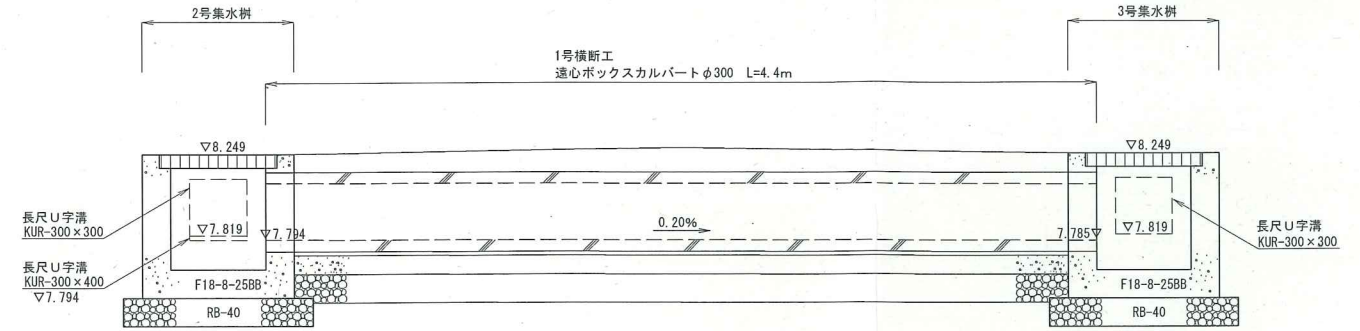 2号集水桝
3号集水桝
1号横断工
遠心ボックスカルバートφ300 L=4.4m
▽8.249
▽8.249
長尺U字溝
KUR-300×300
▽7.819
▽7.794
0.20%
7.785▽
▽7.819
長尺U字溝
KUR-300×300
長尺U字溝
KUR-300×400
▽7.794
F18-8-25BB
F18-8-25BB
RB-40
RB-40